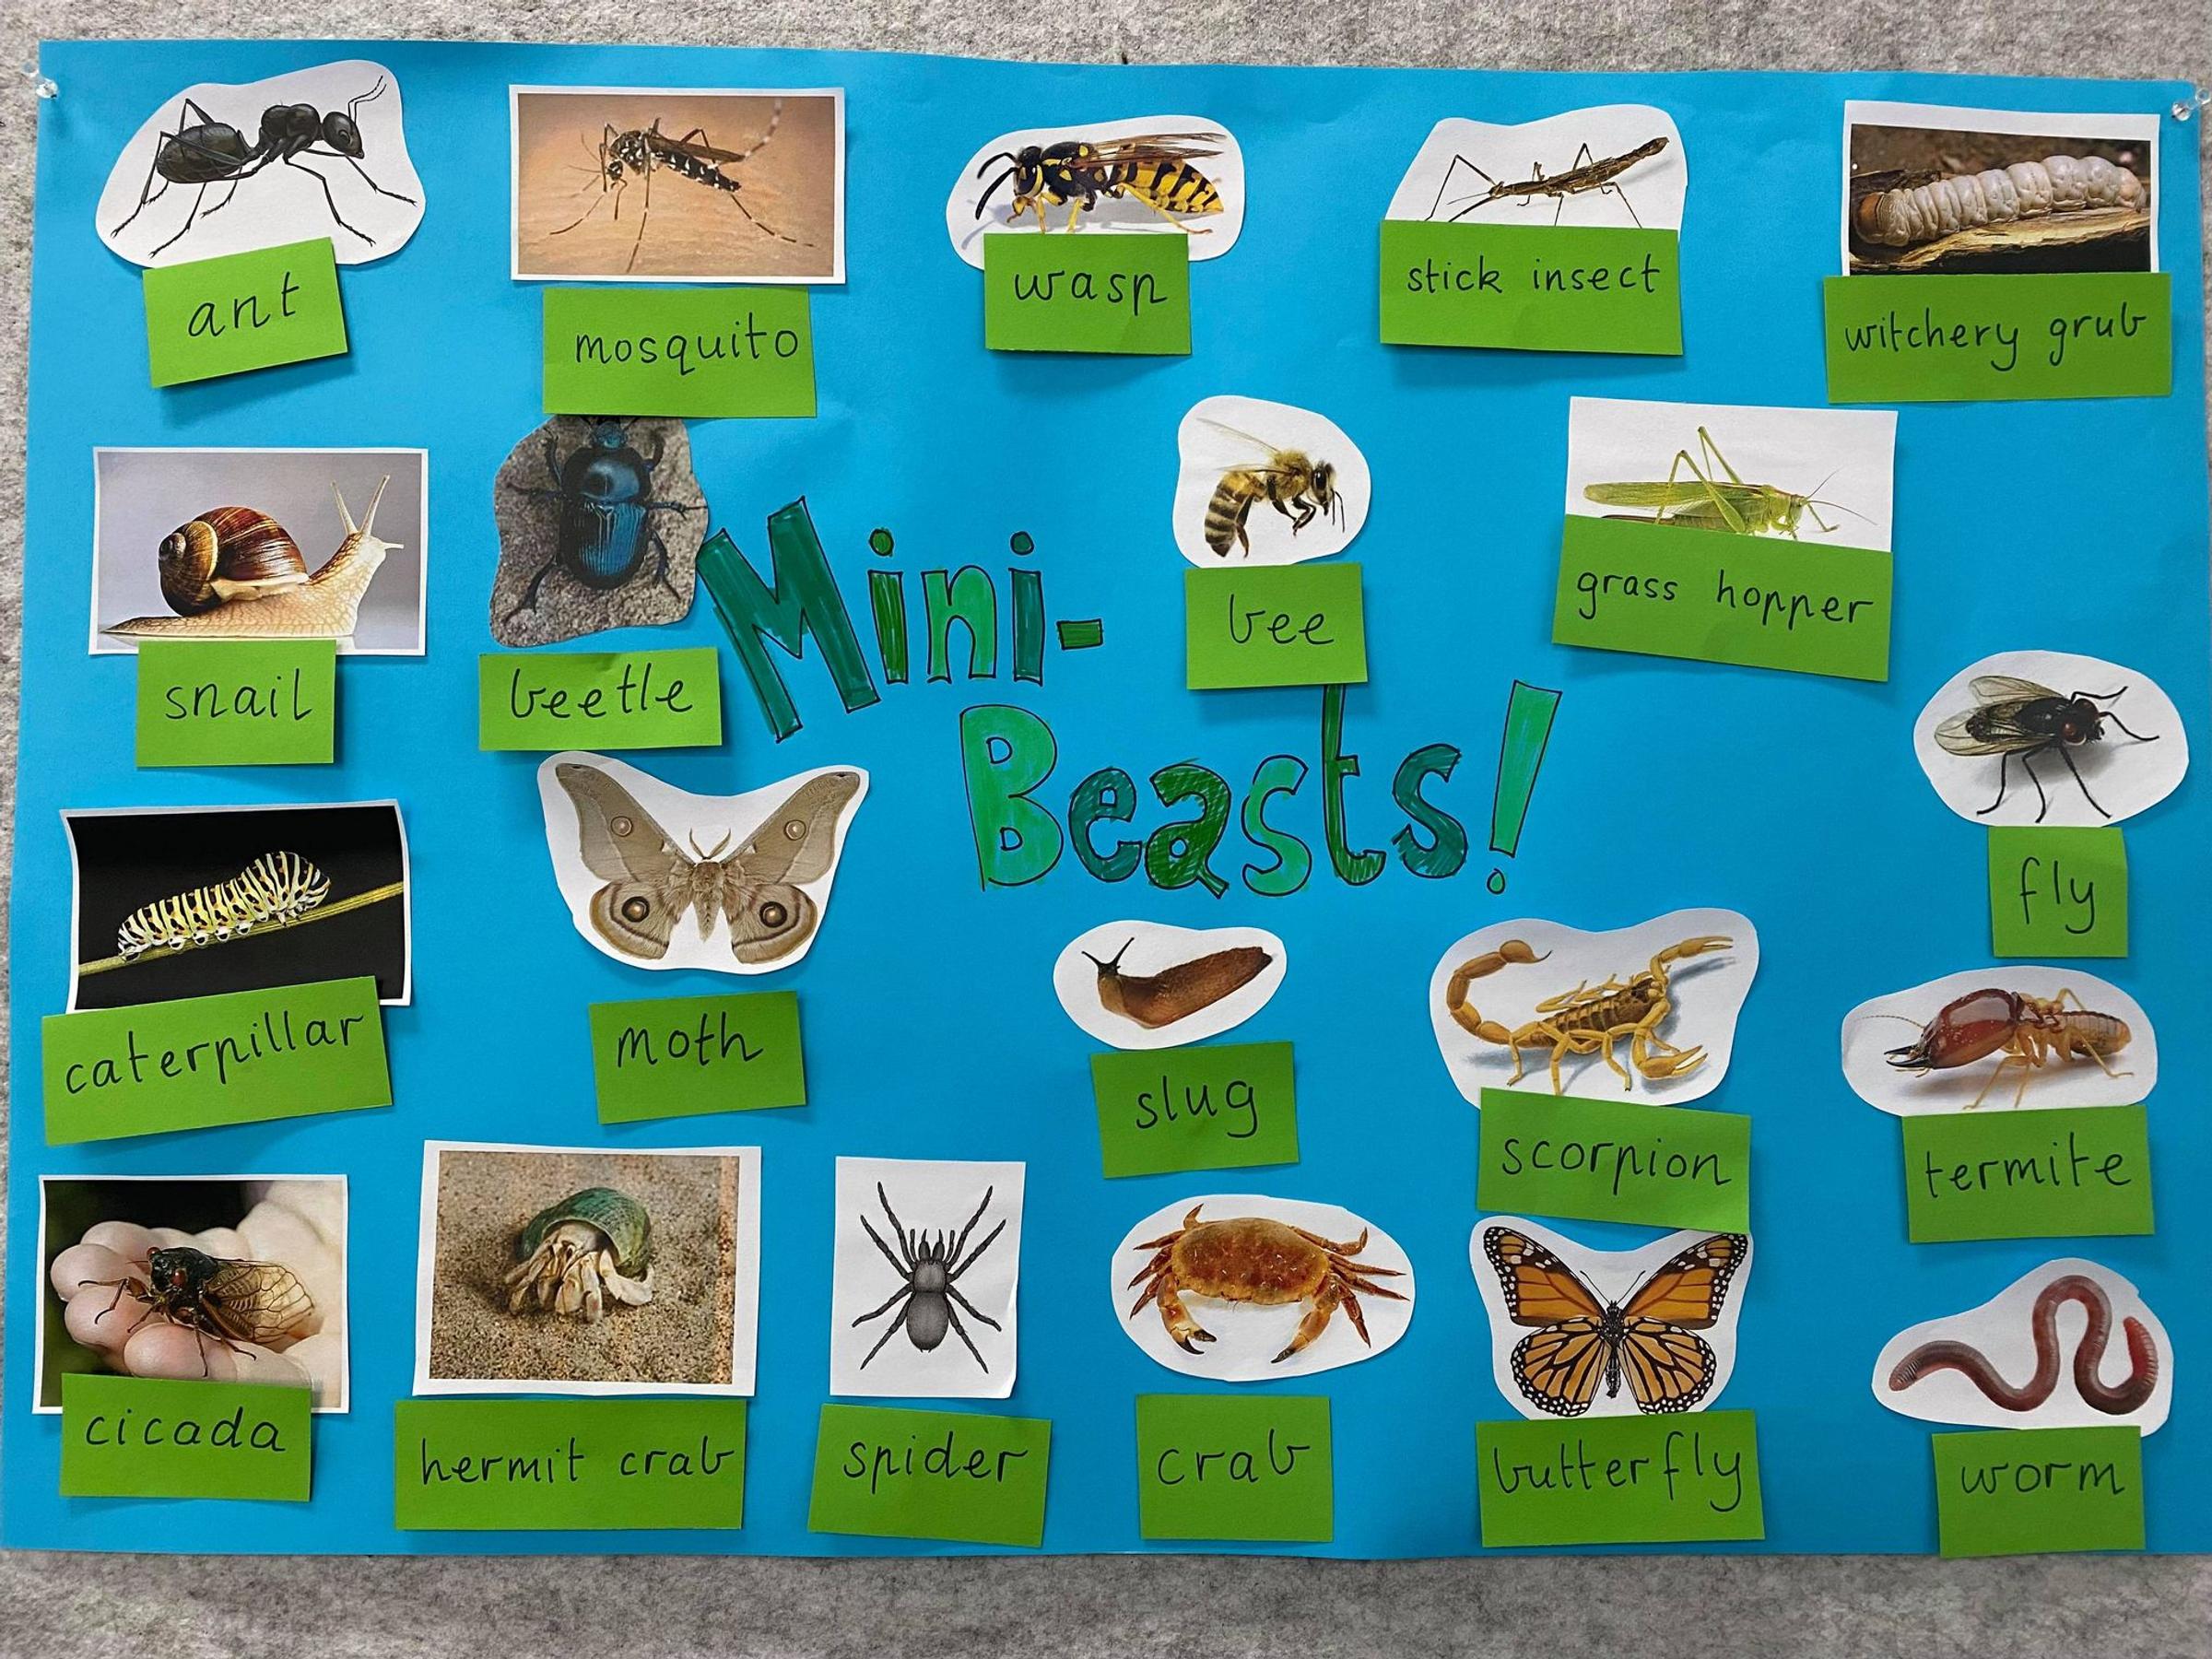 ant
mosquito
wasp
stick insect
witchery grub
snail
beetle
bee
grass hopper
Mini-
Beasts!
fly
caterpillar
moth
slug
scorpion
termite
cicada
hermit crab
spider
crab
butterfly
worm